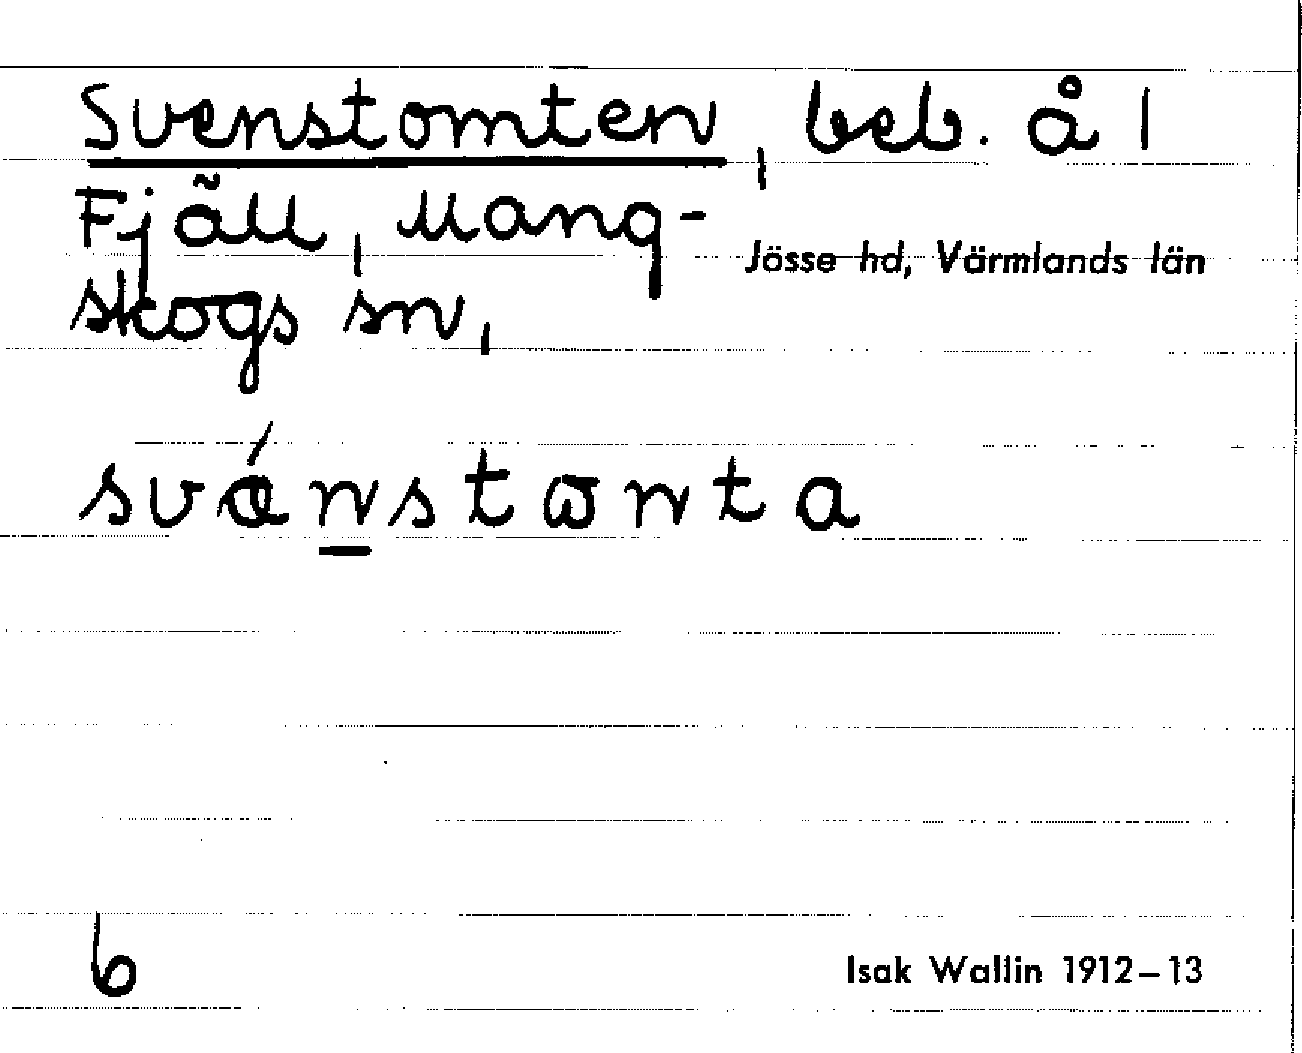 Svenstomten, beb. å 1
Fjäll, Mang-
Jösse hd, Värmlands län
skogs sn,
svǽn̲stɷnta
6
Isak Wallin 1912–13